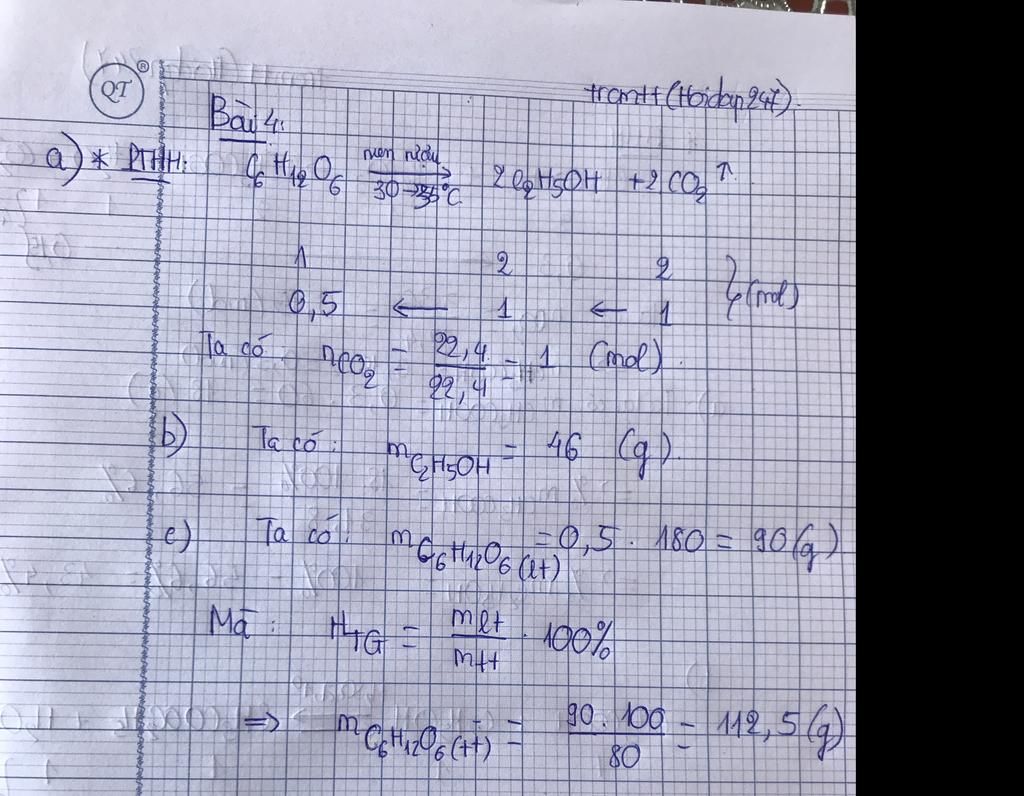 QT ®
tramtt (Hoidap247).
Bài 4:
a) * PTHH: C₆H₁₂O₆ men rượu → 30→35°C 2C₂H₅OH + 2CO₂ ↑
1 2 2 } (mol)
0,5 ← 1 ← 1
Ta có: nCO₂ = 22,4 / 22,4 = 1 (mol).
b) Ta có: mC₂H₅OH = 46 (g).
c) Ta có: mC₆H₁₂O₆ (lt) = 0,5 . 180 = 90 (g)
Mà: HTG = mlt / mtt . 100%
=> mC₆H₁₂O₆ (tt) = 90 . 100 / 80 = 112,5 (g)